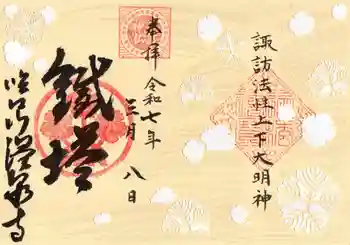 諏訪法性上下大明神
奉拝
令和七年
三月八日
鐵塔